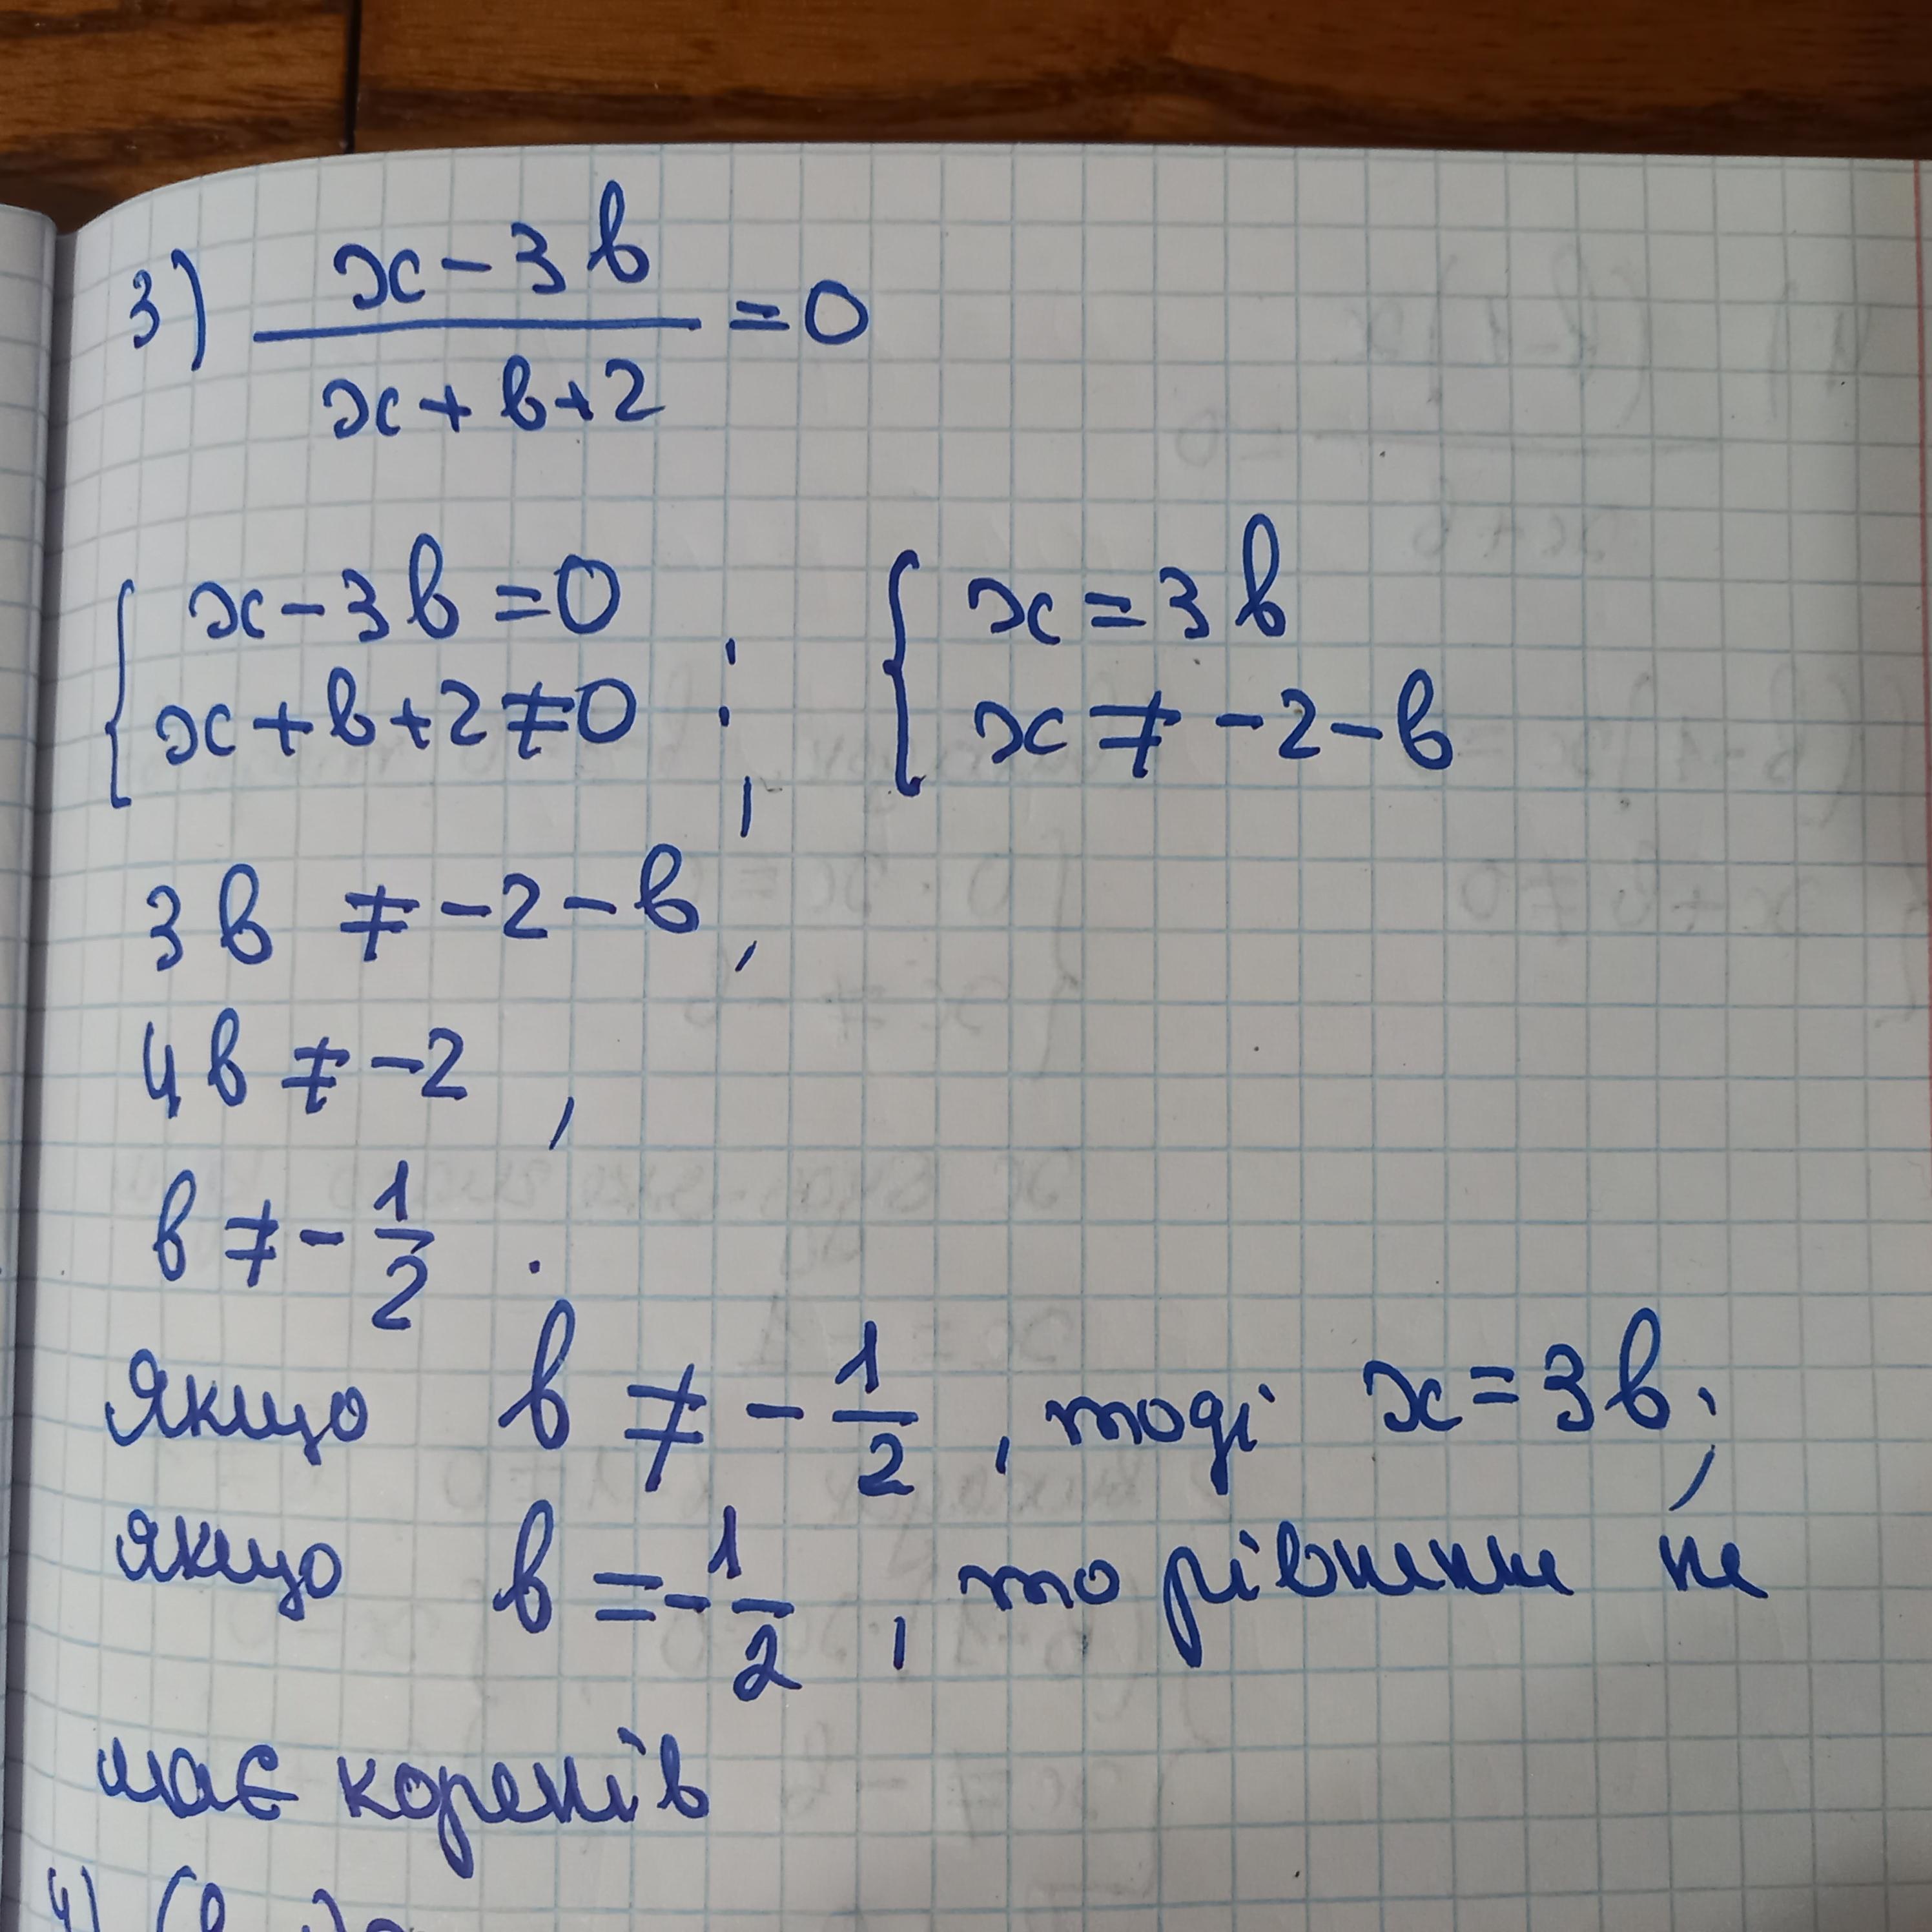 3) (x - 3b)/(x + b + 2) = 0
{ x - 3b = 0 ; { x = 3b
{ x + b + 2 ≠ 0 { x ≠ -2 - b
3b ≠ -2 - b,
4b ≠ -2,
b ≠ -1/2.
Якщо b ≠ -1/2, тоді x = 3b;
якщо b = -1/2, то рівняння не
має коренів
4)